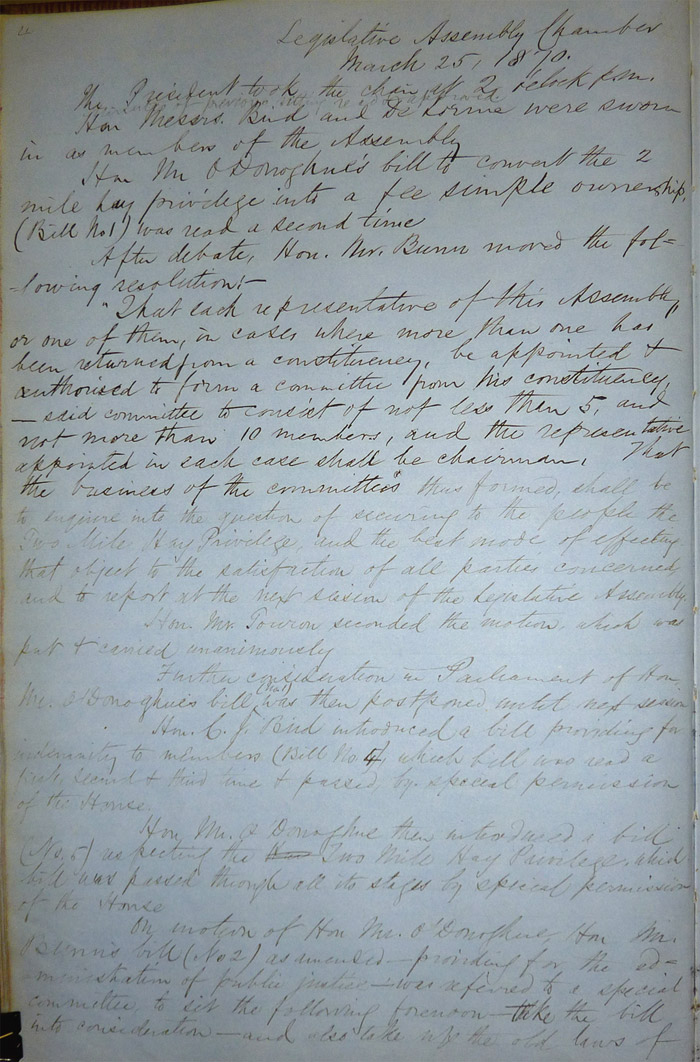 Legislative Assembly Chamber
March 25, 1870.
The President took the chair at 2 o'clock p.m.
Minutes of previous sitting read and approved
Hon Messrs. Bird and De Lorme were sworn
in as members of the Assembly
Hon Mr O'Donoghue's bill to convert the 2
mile hay privilege into a fee simple ownership,
(Bill No 1) was read a second time
After debate, Hon. Mr. Bunn moved the fol=
=lowing resolution:—
"That each representative of this Assembly,
or one of them, in cases where more than one has
been returned from a constituency, be appointed &
authorised to form a committee from his constituency,
— said committee to consist of not less than 5, and
not more than 10 members, and the representative
appointed in each case shall be chairman. That
the business of the committees thus formed, shall be
to enquire into the question of securing to the people the
Two Mile Hay Privilege, and the best mode of effecting
that object to the satisfaction of all parties concerned
and to report at the next session of the Legislative Assembly
Hon. Mr. Poitron seconded the motion, which was
put & carried unanimously
Further consideration in Parliament of Hon.
Mr. O'Donoghue's bill (No 1) was then postponed until next session
Hon. C. J. Bird introduced a bill providing for
indemnity to members (Bill No. 4), which bill was read a
first, second & third time & passed by special permission
of the House.
Hon. Mr. O'Donoghue then introduced a bill
(No. 5) respecting the Two Mile Hay Privilege, which
bill was passed through all its stages by special permission
of the House
On motion of Hon Mr. O'Donoghue, Hon Mr.
Bunn's bill (No 2) as amended — providing for the ad=
=ministration of public justice — was referred to a special
committee, to sit the following forenoon — take the bill
into consideration — and also take up the old laws of